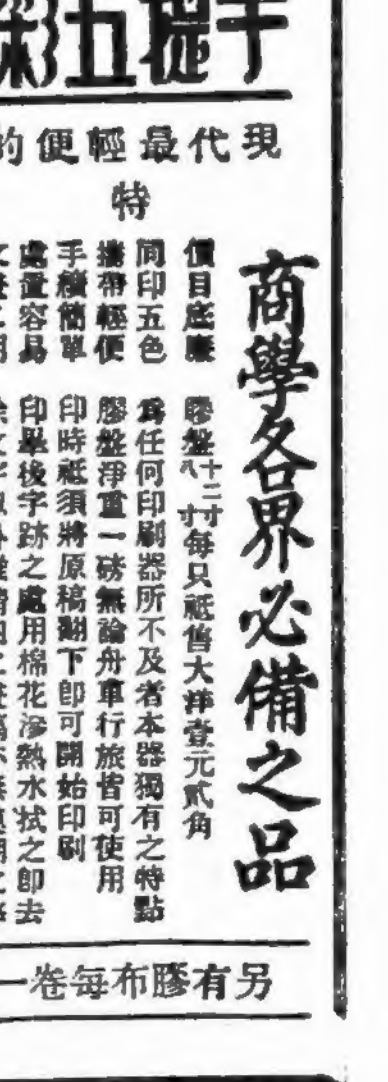 手提五彩
現代最輕便的
特
商學各界必備之品
價目底廉　膠盤十二寸八寸每只祗售大洋壹元貳角
同印五色　為任何印刷器所不及者本器獨有之特點
攜帶輕便　膠盤淨重一磅無論舟車行旅皆可使用
手續簡單　印時祗須將原稿翻下卽可開始印刷
處置容易　印畢後字跡之處用棉花滲熱水拭之卽去
另有膠布每卷一